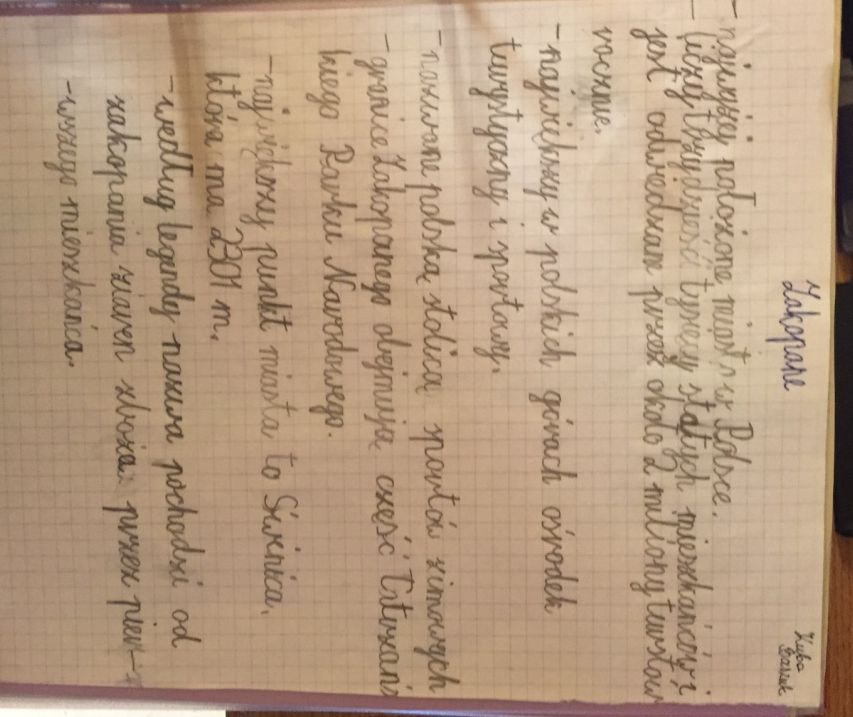 Kuba
Zakopane
- najwyżej położone miasto w Polsce.
- liczy trzydzieści tysięcy stałych mieszkańców i
jest odwiedzane przez około 2 miliony turystów
rocznie.
- największy w polskich górach ośrodek
turystyczny i sportowy.
- nazwane polską stolicą sportów zimowych
- granice Zakopanego obejmują część Tatrzańs
kiego Parku Narodowego.
- najwyższy punkt miasta to Świnica,
która ma 2301 m.
- według legendy nazwa pochodzi od
zakopania ziaren zboża przez pier-
-wszego mieszkańca.